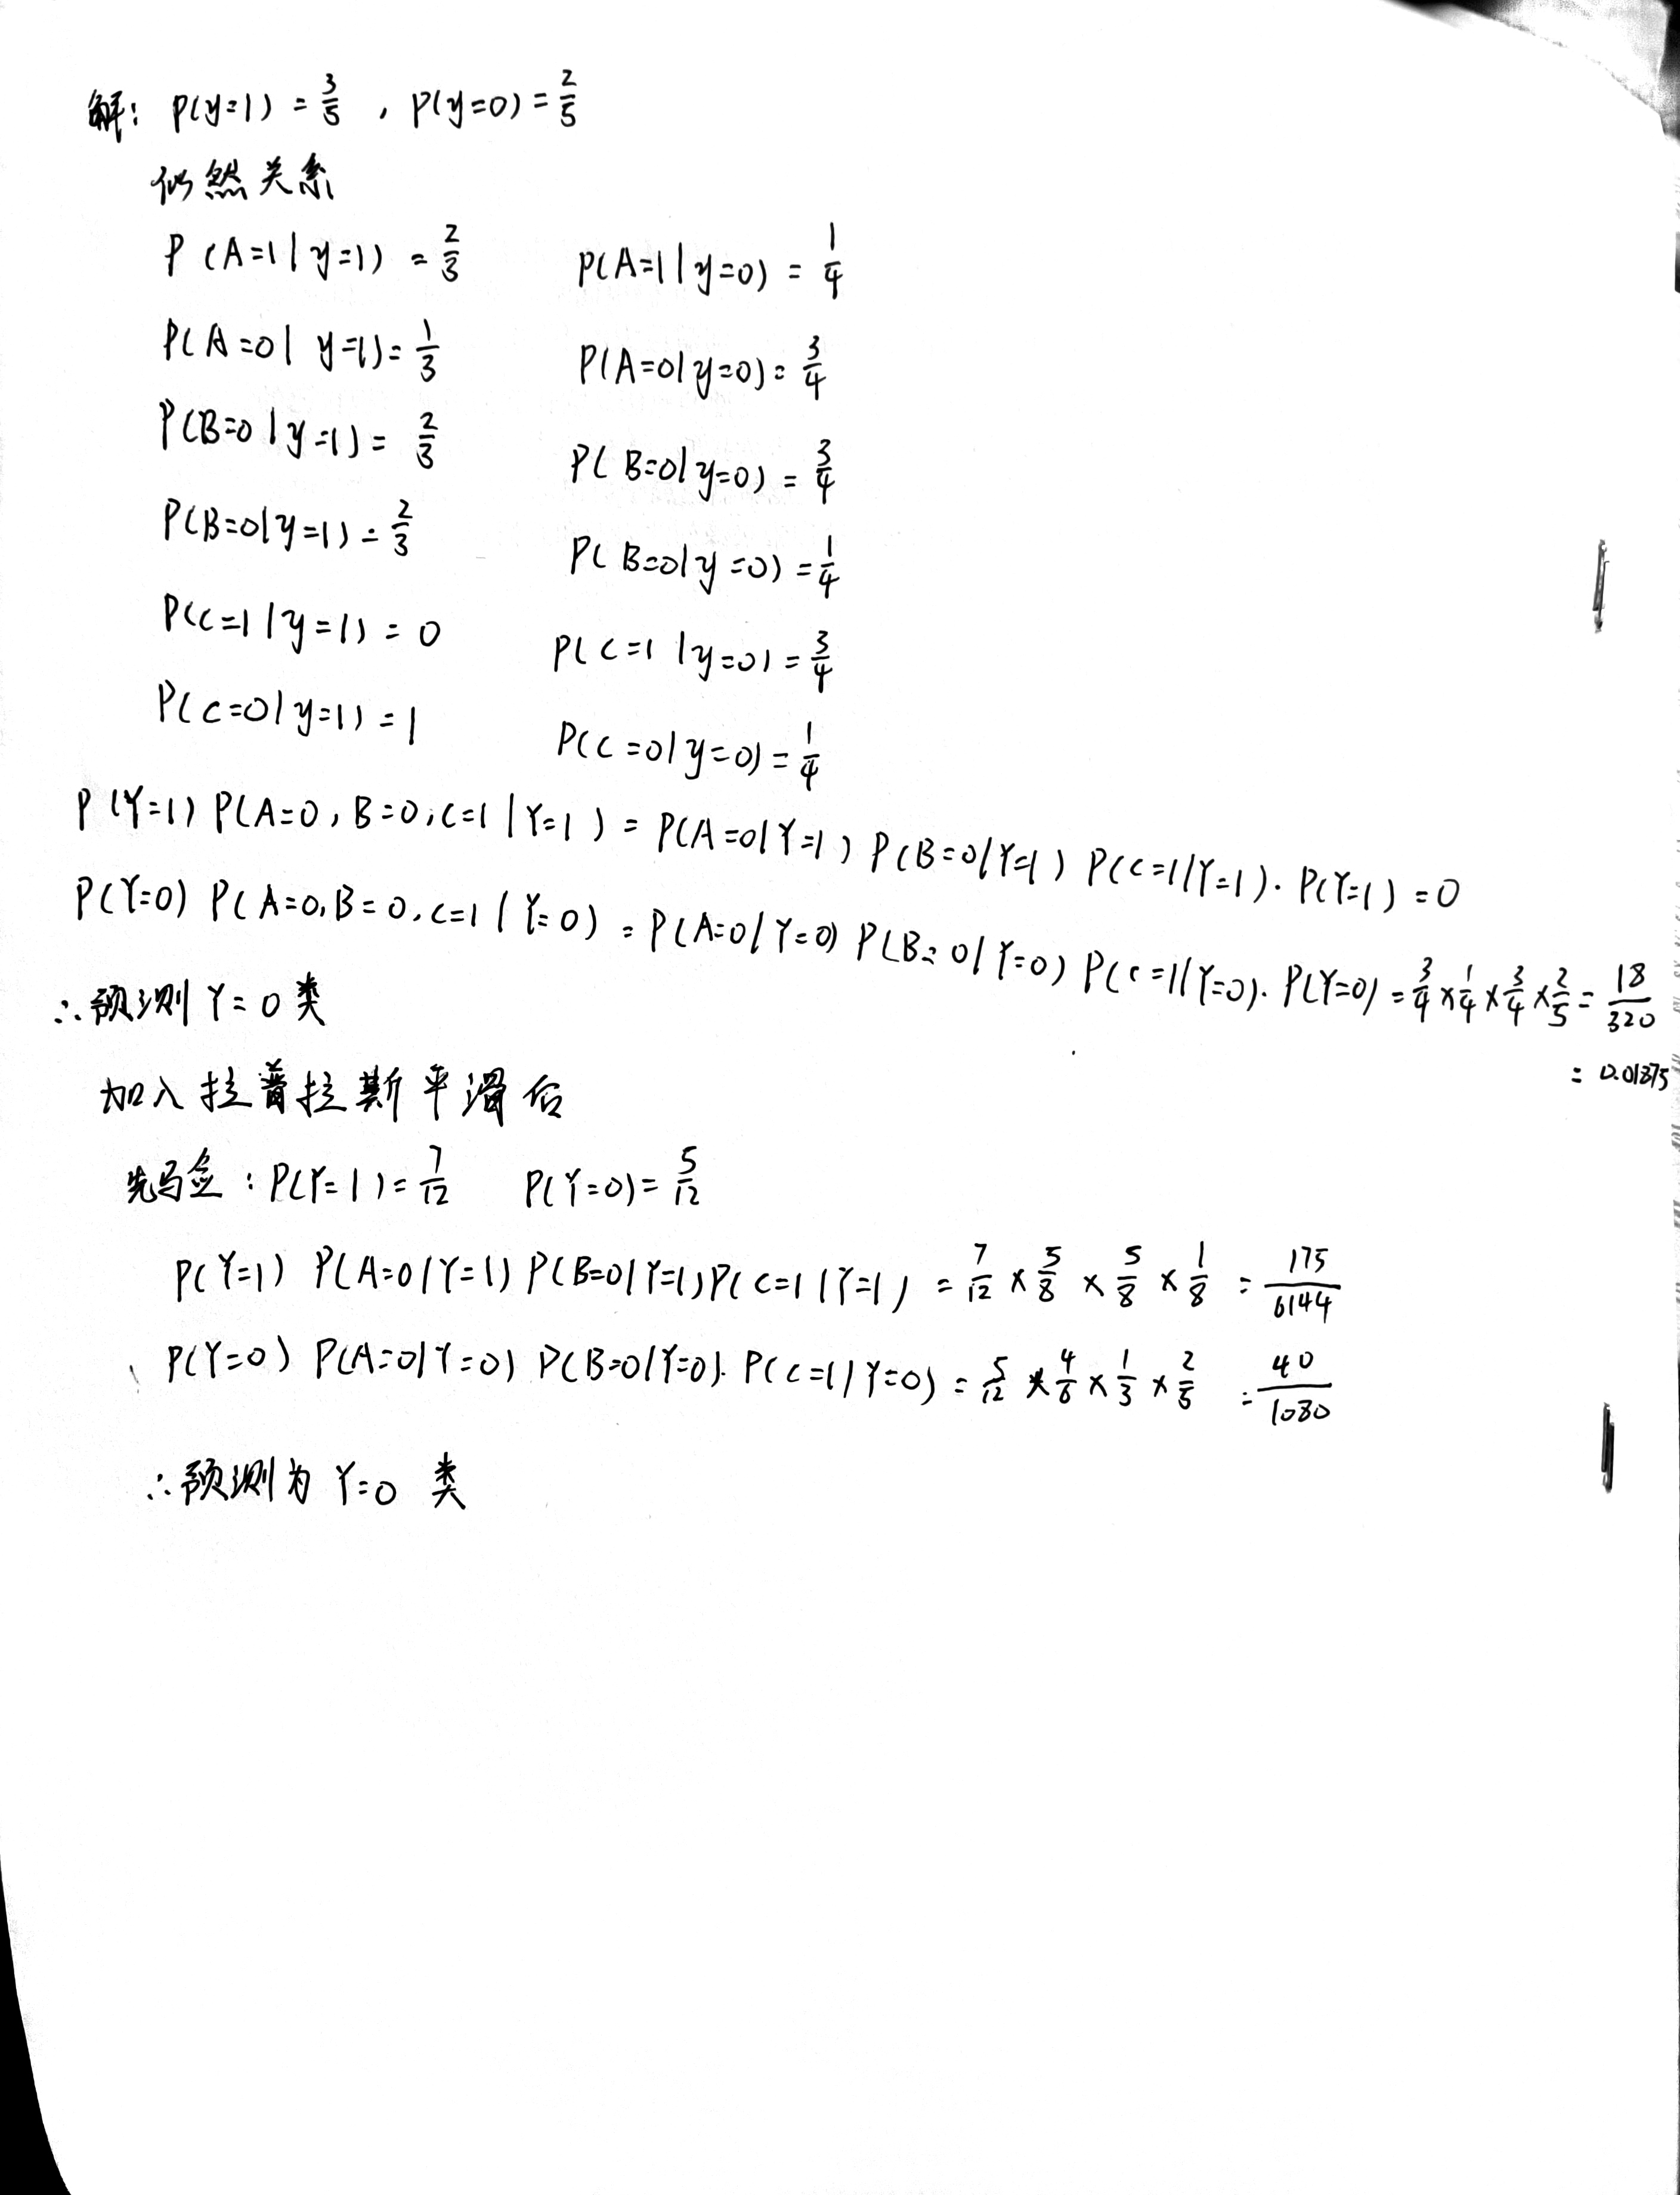 解: P(y=1) = 3/5 , P(y=0) = 2/5
似然关系
P(A=1|y=1) = 2/3 P(A=1|y=0) = 1/4
P(A=0|y=1) = 1/3 P(A=0|y=0) = 3/4
P(B=0|y=1) = 2/3 P(B=0|y=0) = 3/4
P(B=0|y=1) = 2/3 P(B=0|y=0) = 1/4
P(C=1|y=1) = 0 P(C=1|y=0) = 3/4
P(C=0|y=1) = 1 P(C=0|y=0) = 1/4
P(Y=1) P(A=0, B=0, C=1|Y=1) = P(A=0|Y=1) P(B=0|Y=1) P(C=1|Y=1)·P(Y=1) = 0
P(Y=0) P(A=0, B=0, C=1|Y=0) = P(A=0|Y=0) P(B=0|Y=0) P(C=1|Y=0)·P(Y=0) = 3/4 × 1/4 × 3/4 × 2/5 = 18/320
= 0.01875
∴预测 Y=0 类
加入拉普拉斯平滑后
先马佥: P(Y=1) = 7/12 P(Y=0) = 5/12
P(Y=1) P(A=0|Y=1) P(B=0|Y=1) P(C=1|Y=1) = 7/12 × 5/8 × 5/8 × 1/8 = 175/6144
P(Y=0) P(A=0|Y=0) P(B=0|Y=0)·P(C=1|Y=0) = 5/12 × 4/6 × 1/3 × 2/5 = 40/1080
∴预测为 Y=0 类